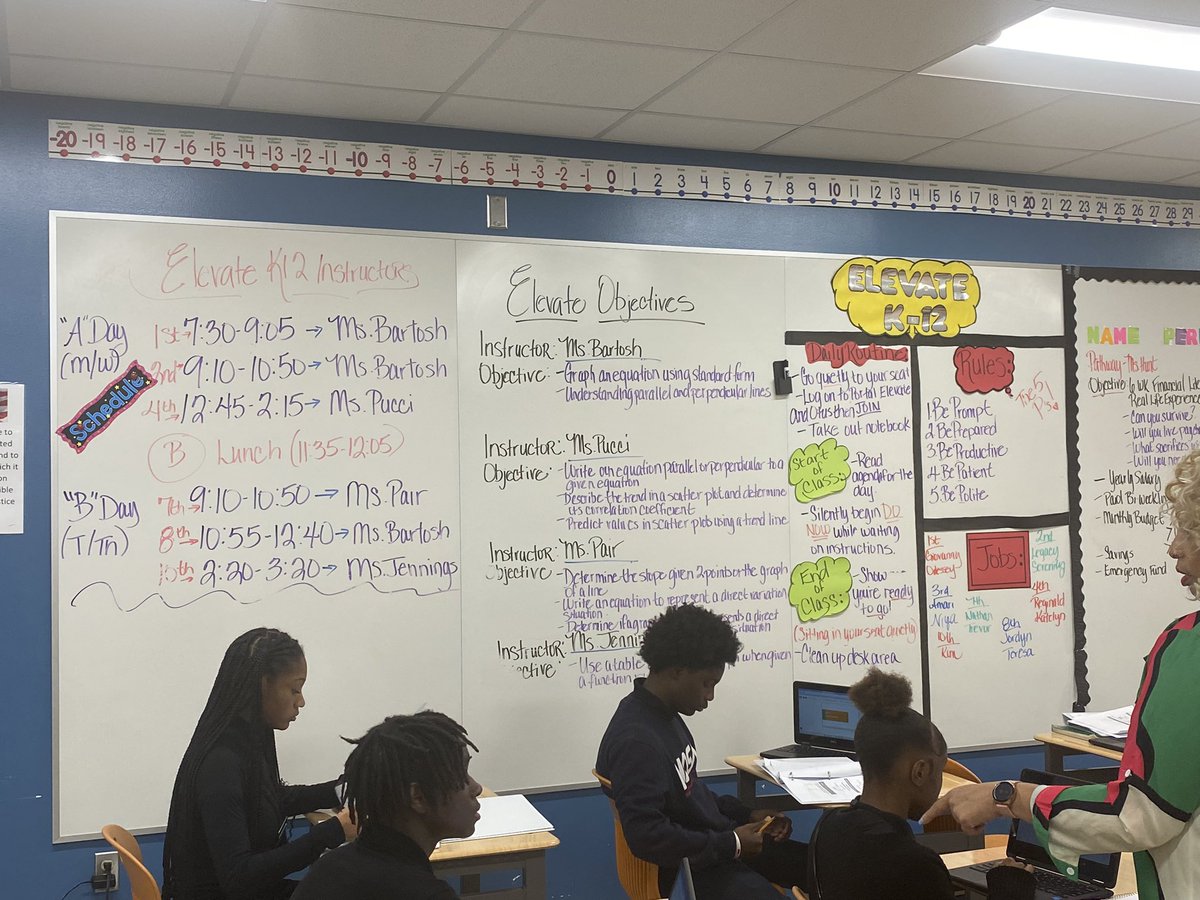 -20 -19 -18 -17 -16 -15 -14 -13 -12 -11 -10 -9 -8 -7 -6 -5 -4 -3 -2 -1 0 1 2 3 4 5 6 7 8 9 10 11 12 13 14 15 16 17 18 19 20 21 22 23 24 25 26 27 28 29
Elevate K12 Instructors
"A" Day
(m/w)
Schedule
1st → 7:30-9:05 → Ms. Bartosh
2nd → 9:10-10:50 → Ms. Bartosh
4th → 12:45-2:15 → Ms. Pucci
B Lunch (11:35-12:05)
"B" Day
(T/Th)
7th → 9:10-10:50 → Ms. Pair
8th → 10:55-12:40 → Ms. Bartosh
10th → 2:20-3:20 → Ms. Jennings
Elevate Objectives
Instructor: Ms. Bartosh
Objective: - Graph an equation using standard form
Understanding parallel and perpendicular lines
Instructor: Ms. Pucci
Objective: - Write an equation parallel or perpendicular to a
given equation
- Describe the trend in a scatter plot and determine
its correlation coefficient
- Predict values in scatter plots using a trend line
Instructor: Ms. Pair
Objective: - Determine the slope given 2 points or the graph
of a line
- Write an equation to represent a direct variation
situation
Determine if a gra s a direct
situation
Instructor: Ms. Jenni
jective: - Use a table when given
a function
ELEVATE
K-12
Daily Routine
- Go quietly to your seat
- Log on to Portal Elevate
and Otus then JOIN
- Take out notebook
Start of Class:
- Read
agenda for the
day.
- Silently begin DO
NOW while waiting
on instructions.
End of Class:
- Show
you're ready
to go!
(Sitting in your seat quietly)
- Clean up desk area
Rules:
The 5 P's
1. Be Prompt
2. Be Prepared
3. Be Productive
4. Be Patient
5. Be Polite
Jobs:
1st
2nd
Legacy
Serenity
3rd
Amari
Niya
7th
Nathan
Trevor
4th
Reginald
Katelyn
8th
Jordyn
Teresa
10th
Kim
NAME PER
Objective
Real Life Experience
- Can you survive
- Will you live
- What sacrifices
- Will you
- Yearly Salary
- Paid Bi-weekly
- Monthly Budget
- Savings
- Emergency Fund